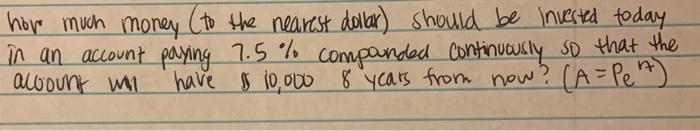 how much money (to the nearest dollar) should be invested today
in an account paying 7.5% compounded continuously so that the
account will have $ 10,000 8 years from now? (A = Pe^rt)